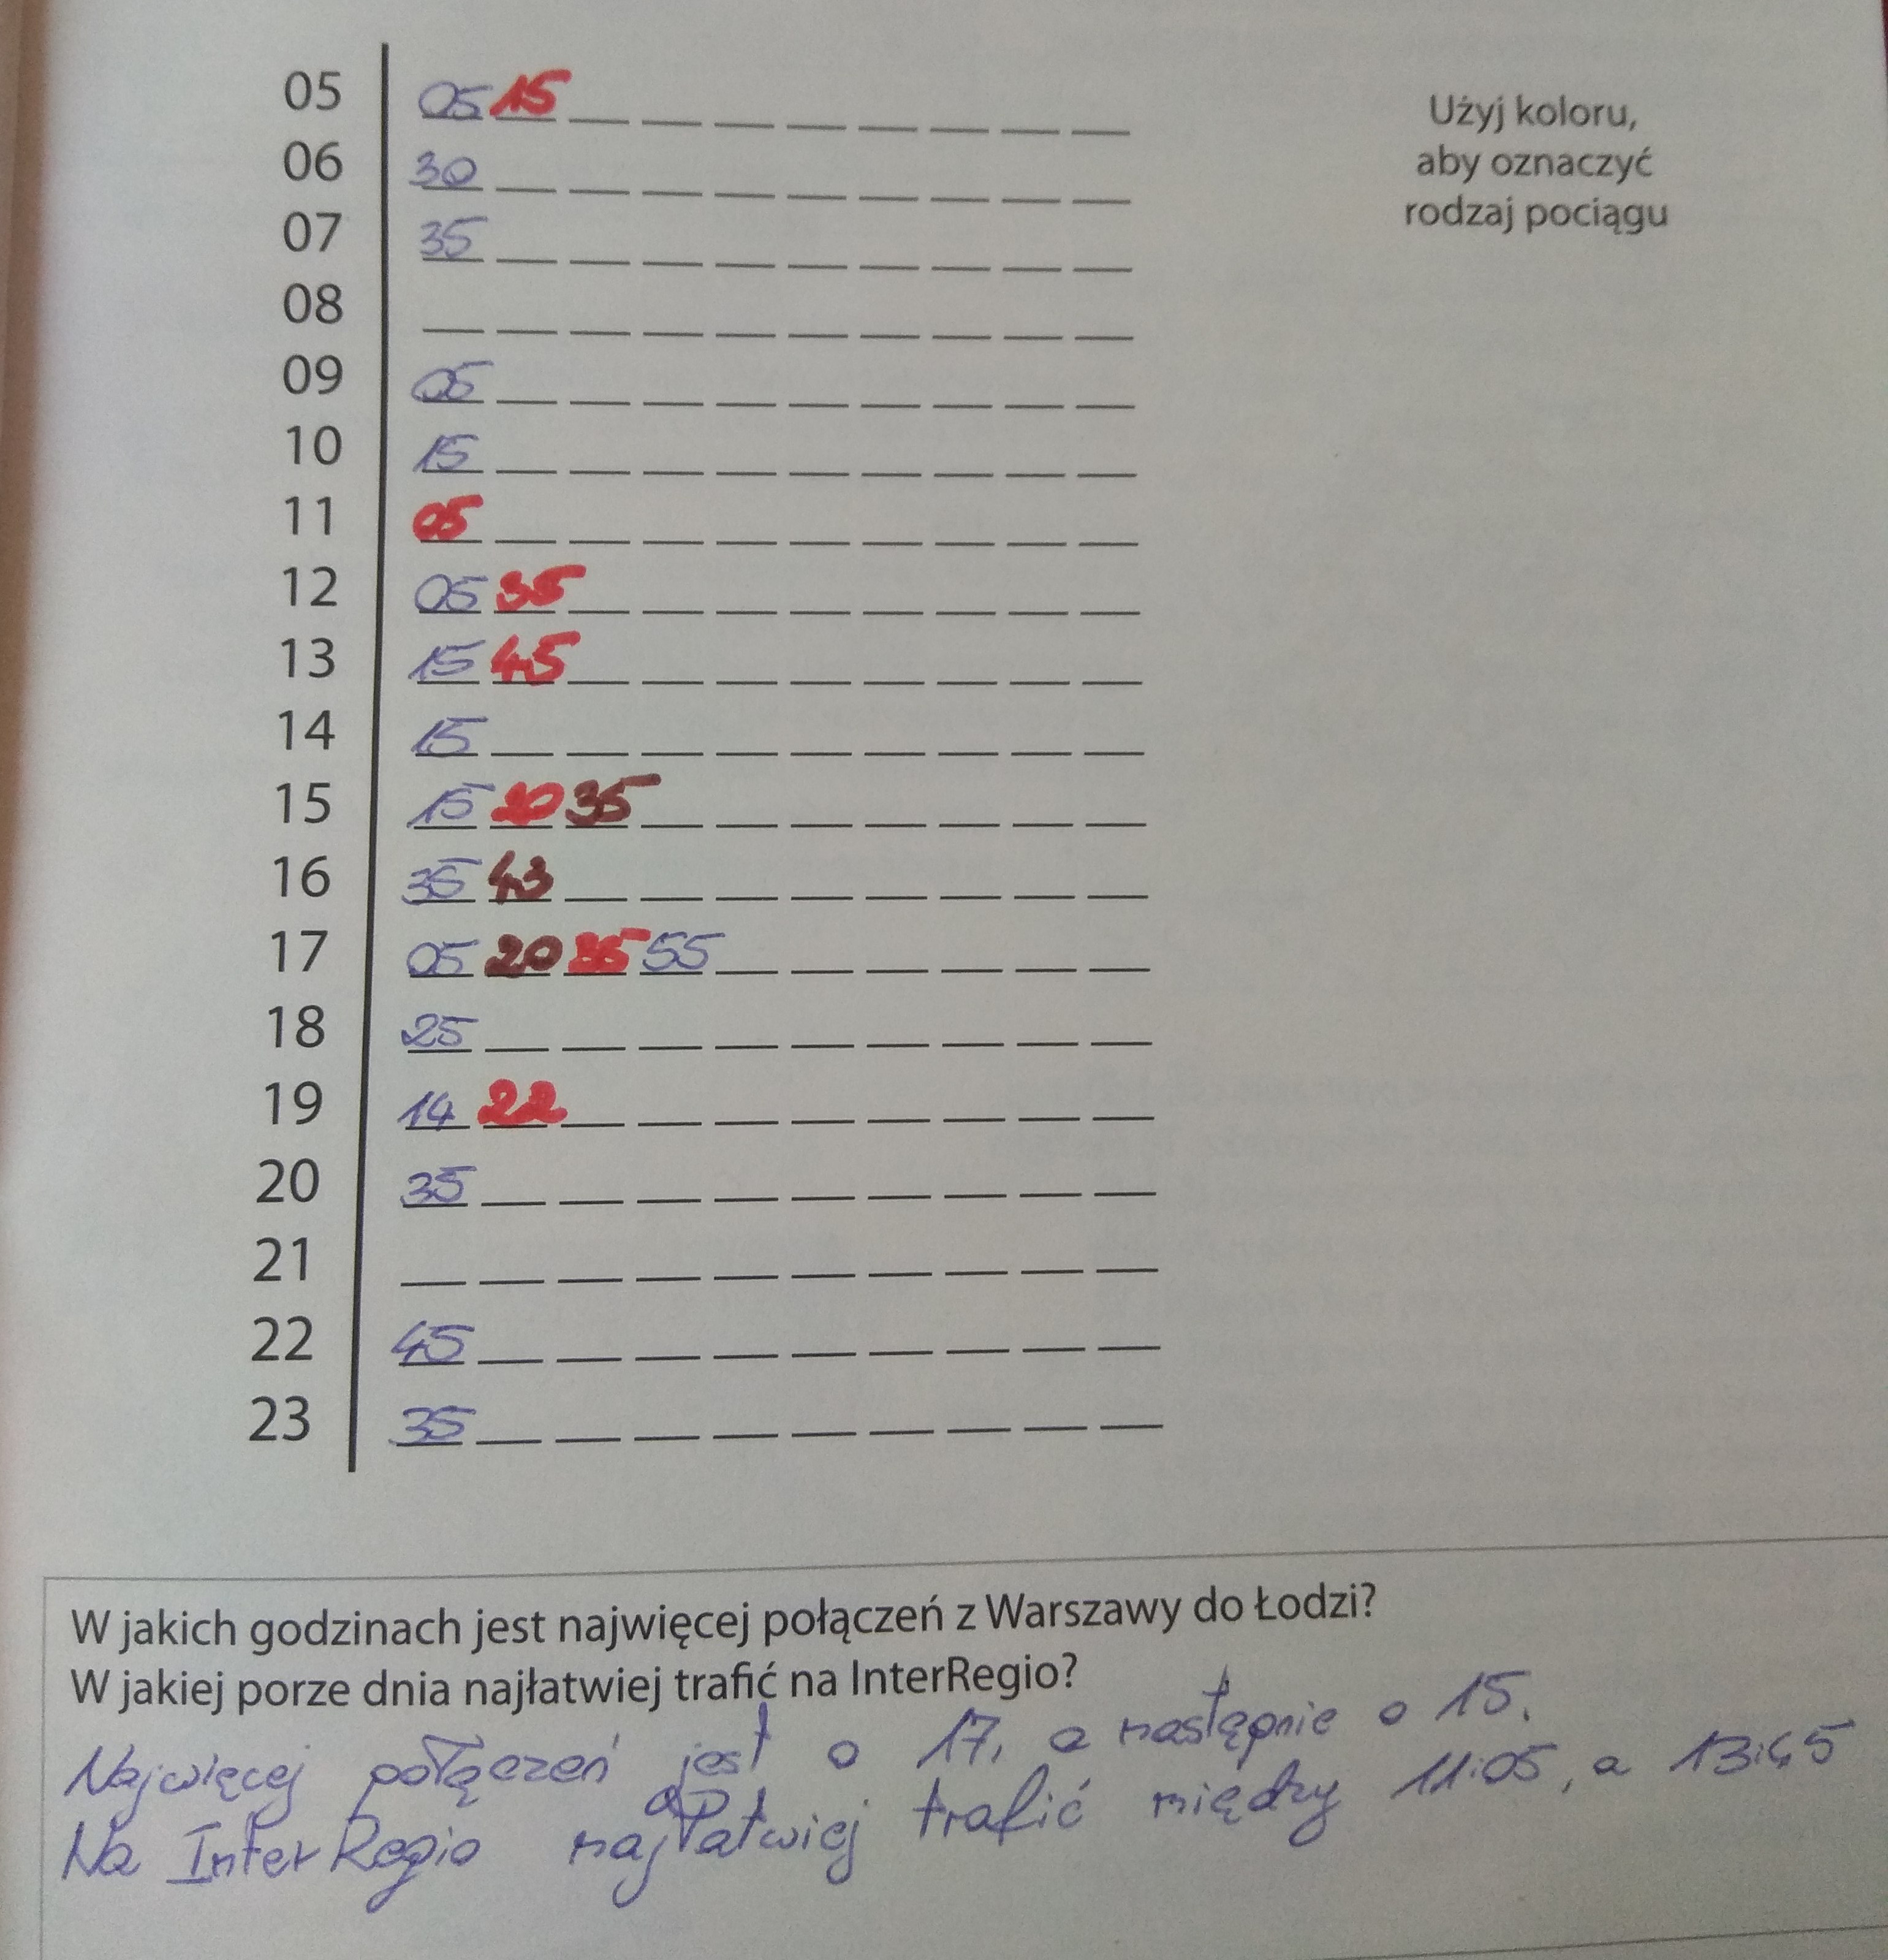 05 05 15
06 30
07 35
08
09 05
10 15
11 05
12 05 35
13 15 45
14 15
15 15 20 35
16 35 43
17 05 20 35 55
18 25
19 14 22
20 35
21
22 45
23 35
Użyj koloru,
aby oznaczyć
rodzaj pociągu
W jakich godzinach jest najwięcej połączeń z Warszawy do Łodzi?
W jakiej porze dnia najłatwiej trafić na InterRegio?
Najwięcej połączeń jest o 17, a następnie o 15.
Na InterRegio najłatwiej trafić między 11:05, a 13:45